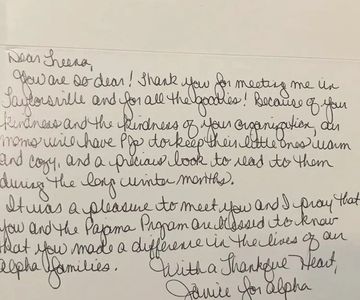 Dear Sheena,
You are so dear! Thank you for meeting me in
Taylorsville and for all the goodies! Because of your
kindness and the kindness of your organization, our
moms will have PJs to keep their little ones warm
and cozy, and a precious book to read to them
during the long winter months.
It was a pleasure to meet you and I pray that
you and the Pajama Program are blessed to know
that you made a difference in the lives of our
alpha families.
With a Thankful Heart,
Janice for alpha